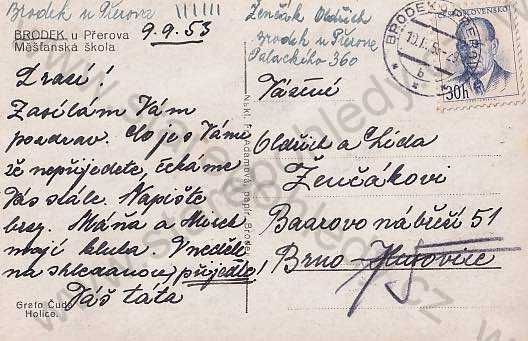 Brodek u Přerova
BRODEK u Přerova
Měšťanská škola
9.9.53
Drazí!
Zasílám Vám
pozdrav. Co je s Vámi
že nepřijedete, čekáme
Vás stále. Napište
brzy. Máňa a Mirek
mají kluka V neděli
na shledanou, přijeďte!
Váš táta
Grafo Čuda
Holice.
Nakl. F. Adamova papír. Brodek
Ženčák Oldřich
Brodek u Přerova
Palackého 360
BRODEK U PŘEROVA
ČESKOSLOVENSKO
30h
Vážení
Oldřich a Lída
Ženčákovi
Baarovo nábřeží 51
Brno - Husovice
15